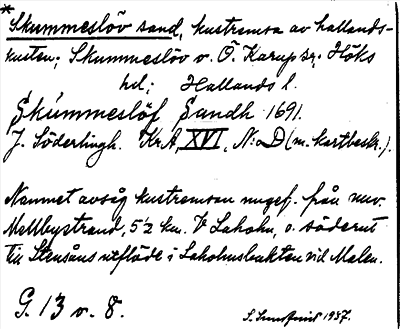 * Skummeslöv sand, kustremsa av hallands-
kusten; Skummeslöv o. Ö. Karup sr; Höks
hd; Hallands l.
Skummeslöf Sandh 1691.
J. Söderlingh. Kr.A, XVI, N:o D (m. kartbeskr.).
Namnet avsåg kustremsan ungef. från nuv.
Mellbystrand, 5½ km. V Laholm, o. söderut
till Stensåns utflöde i Laholmsbukten vid Malen.
G. 13 v. 8.
S. 1937.